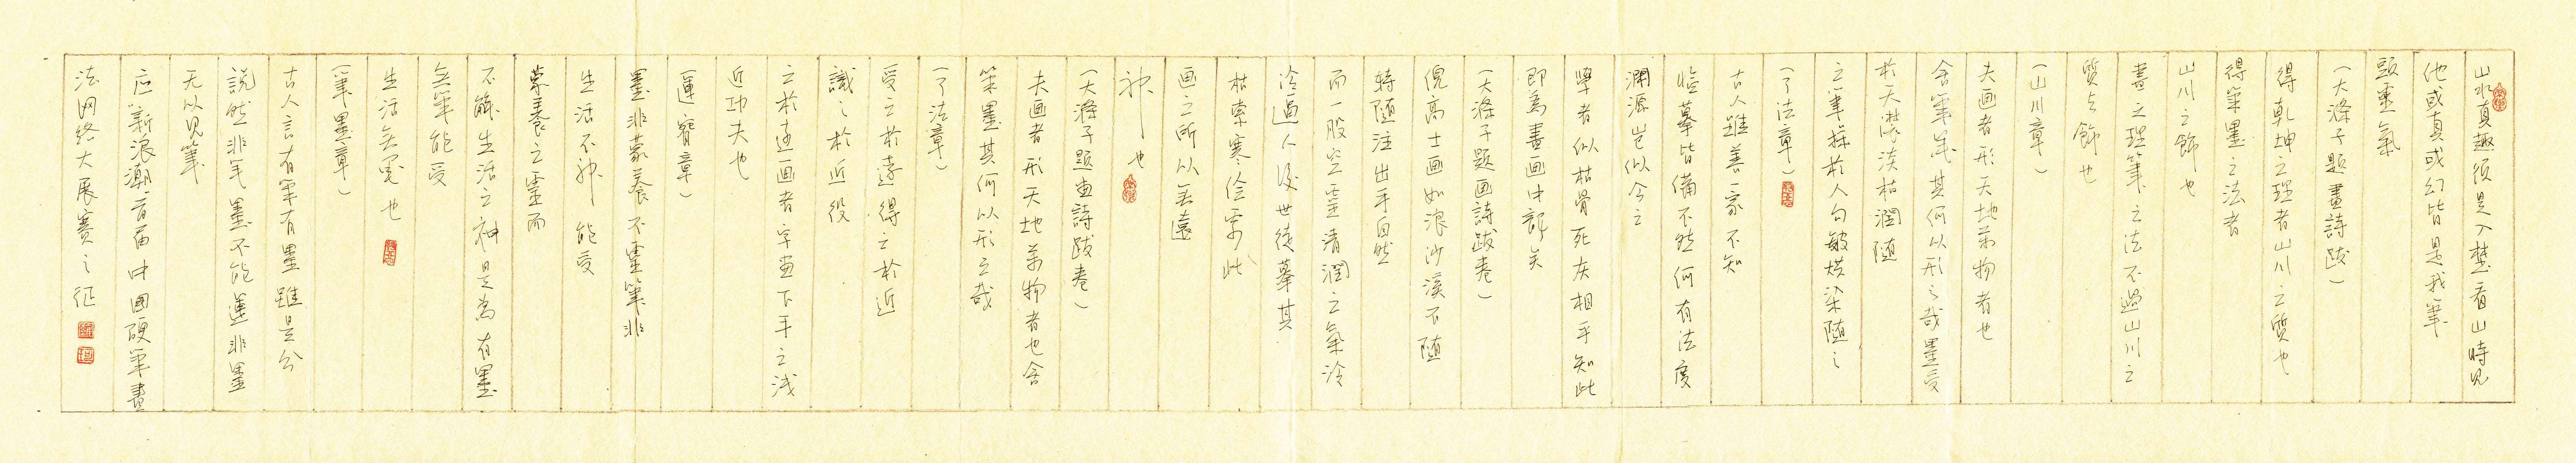 山水真趣須是入楚看山時見
他或真或幻皆是我筆
頭靈氣
（大滌子題畫詩跋）
得乾坤之理者山川之質也
得筆墨之法者
山川之飾也
畫之理筆之法不過山川之
質与飾也
（山川章）
夫画者形天地萬物者也
舍筆墨其何以形之哉墨受
於天濃淡枯潤随
之筆操於人勾皴烘染随之
（了法章）
古人雖善一家不知
临摹皆備不然何有法度
渊源豈似今之
學者似枯骨死灰相乎知此
即為書画中龍矣
（大滌子題画詩跋卷）
倪高士画如浪沙溪石随
轉随注出手自然
而一股空靈清潤之氣冷
冷逼人後世徒摹其
枯索寒俭處此
画之所以无遠
神也
（大滌子題画詩跋卷）
夫画者形天地萬物者也舍
筆墨其何以形之哉
（了法章）
受之於遠得之於近
識之於近役
之於遠画者字画下手之浅
近功夫也
（運腕章）
墨非蒙養不靈筆非
生活不神能受
蒙養之靈而
不解生活之神是為有墨
無筆能受
生活無墨也
（筆墨章）
古人言有筆有墨雖是分
說然非笔墨不能運非墨
无以見筆
应新浪潮首届中國硬筆書
法网络大展赛之征